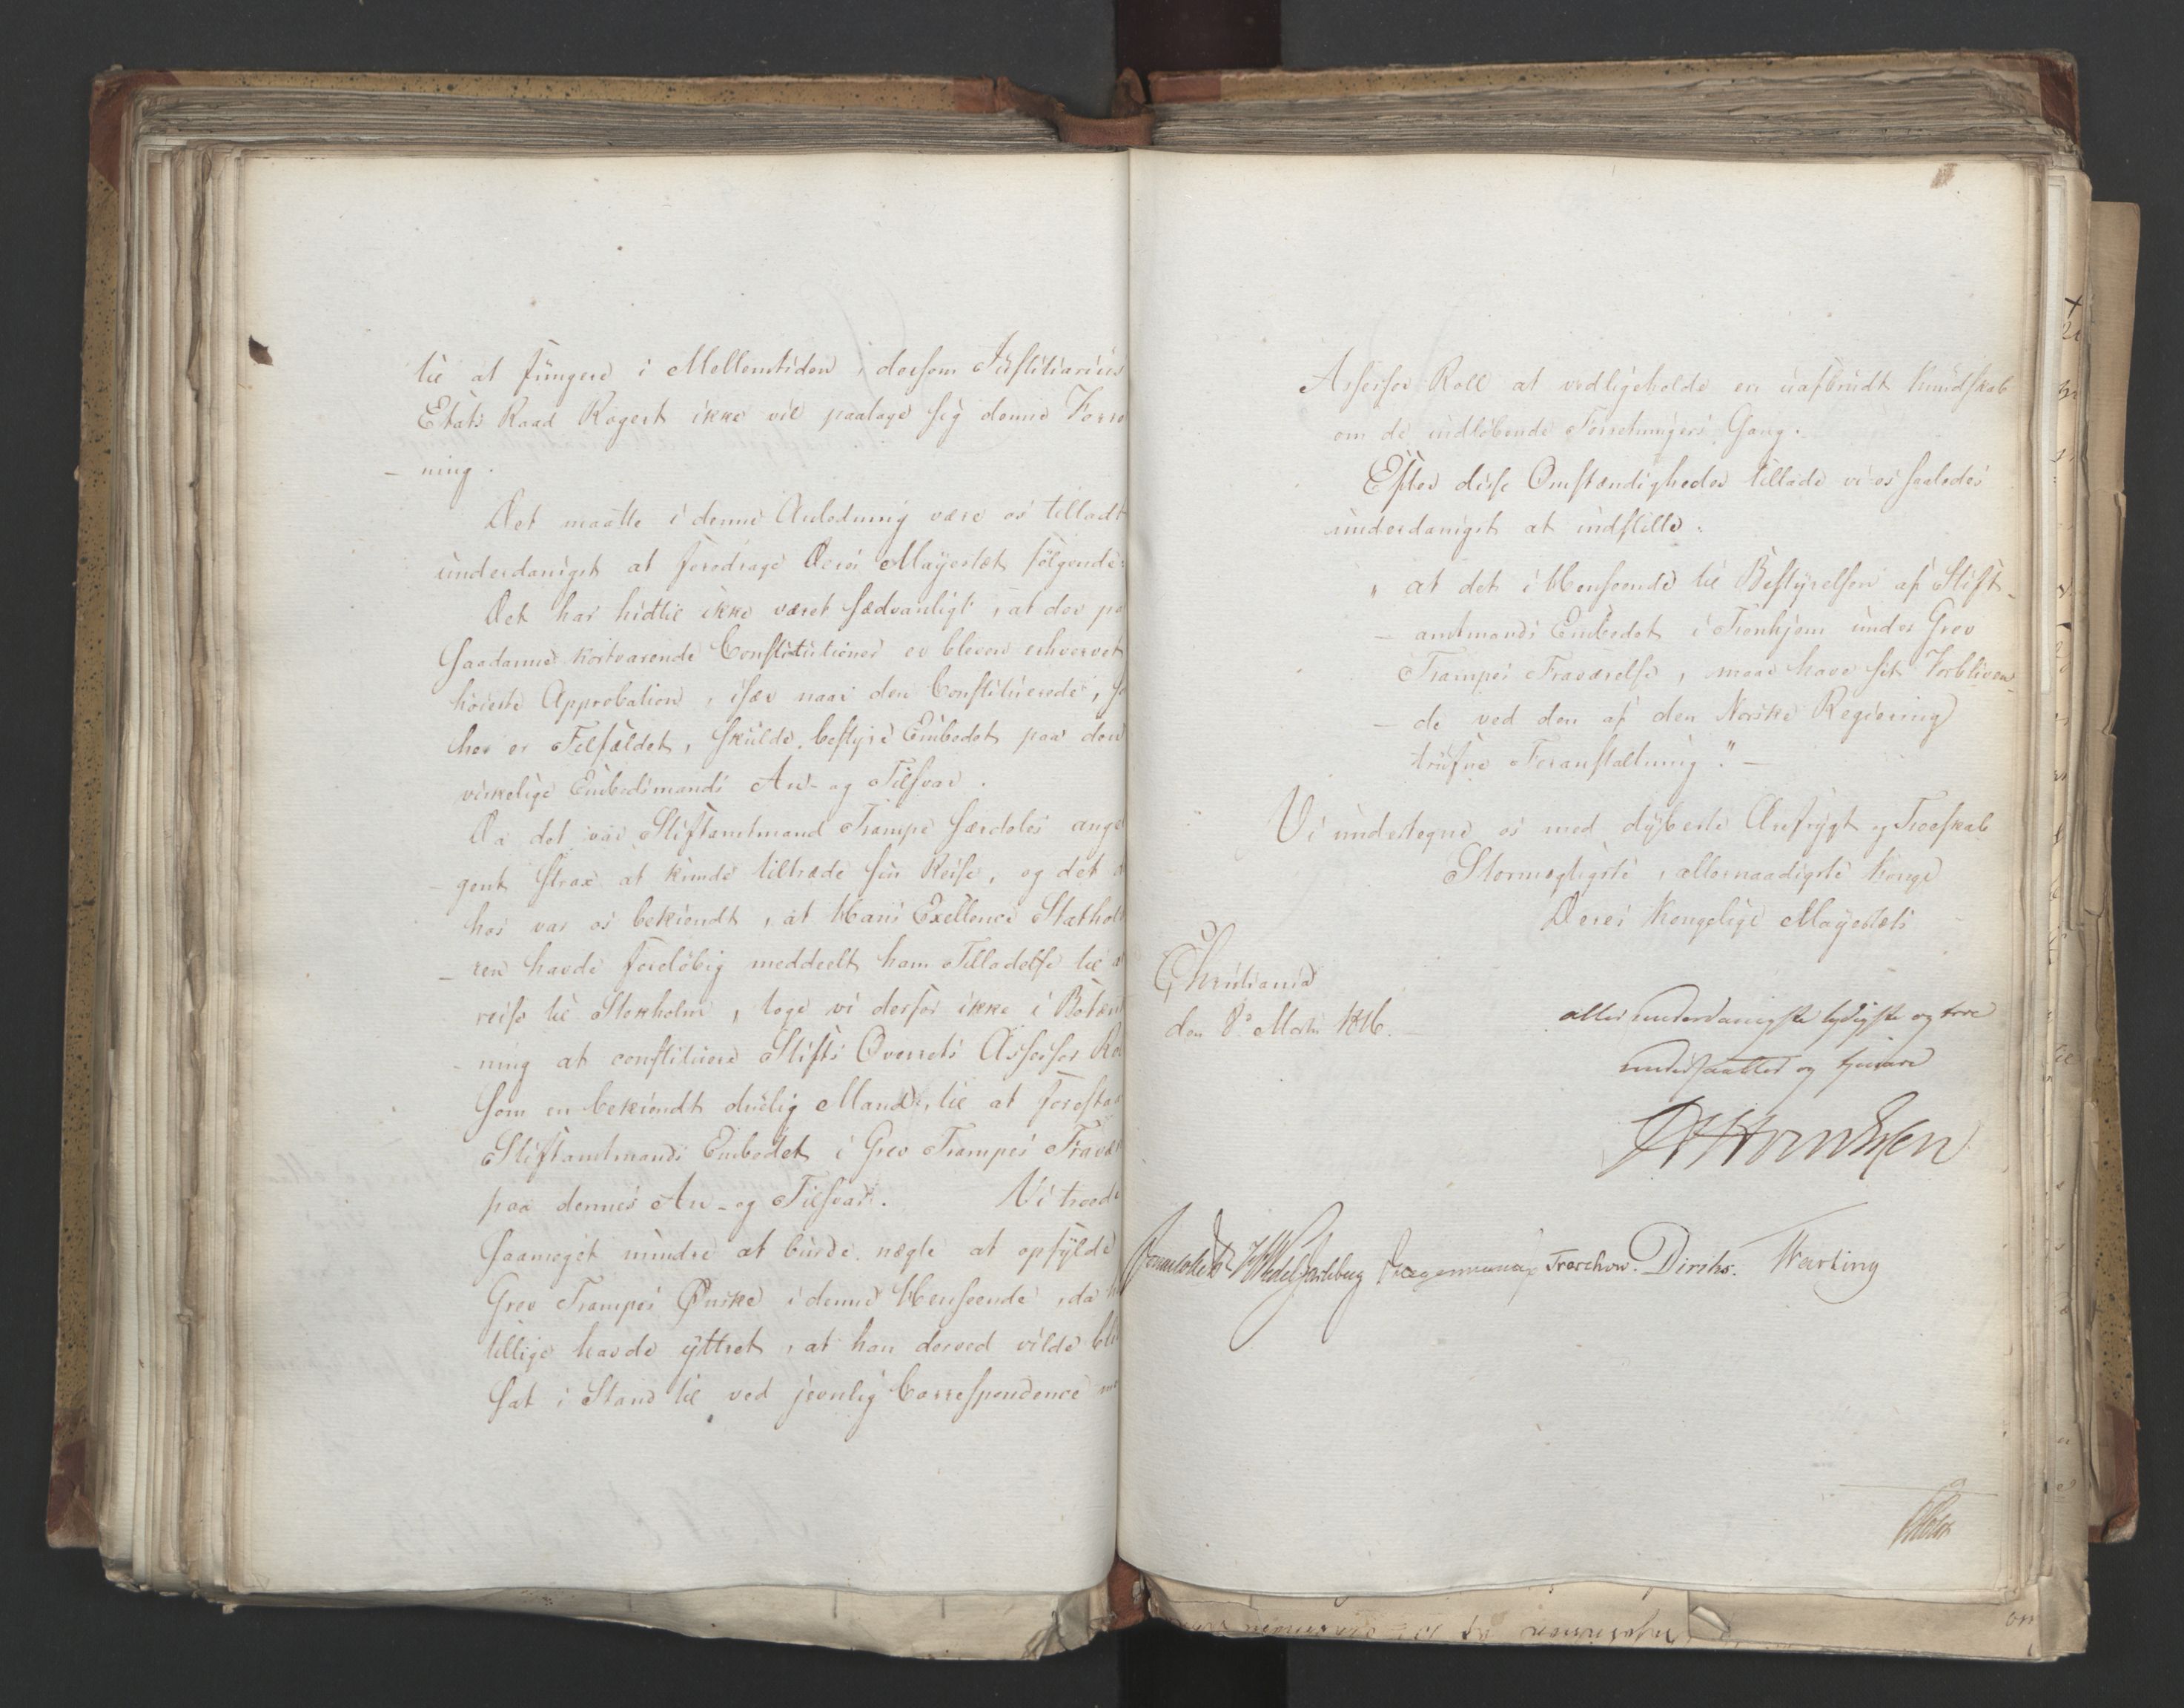 til at fungere i Mellemtiden, dersom Justitiarius
Etats Raad Rogert ikke vil paatage sig denne Forre
- ning.
Det maatte i denne Anledning være os tilladt
underdanigst at foredrage Deres Mayestæt følgende:
Det har hidtil ikke været sædvanligt, at der pa
saadanne kortvarende Constitutioner er bleven erhvervet
høieste Approbation, især naar den Constituerede, so
her er Tilfældet, skulde bestyre Embedet paa den
virkelige Embedsmands An- og Tilsvar.
Da det var Stiftamtmand Trampe særdeles ange
- gent strax at kunde tiltræde sin Reise, og det d
hos var os bekiendt, at Hans Exellence Stathold
- ren havde foreløbig meddeelt ham Tilladelse til a
reise til Stokholm, toge vi derfor ikke i Betænk
- ning at constituere Stifts Overrets Assessor Rol
som en bekiendt duelig Mand, til at forestaa
Stiftamtmands Embedet i Grev Trampes Fravær
paa dennes An- og Tilsvar. Vi troede
saameget mindre at burde nægte at opfylde
Grev Trampes Ønske i denne Henseende, da h
tillige havde ýttret, at han derved vilde bli
sat i Stand til ved jevnlig Correspondence me
Assessor Roll at vedligeholde en uafbrudt Kundskab
om de indløbende Forretningers Gang.
Efter disse Omstændigheder tillade vi os saaledes
underdanigst at indstille:
" at det i Henseende til Bestyrelsen af Stift-
- amtmands Embedet i Tronhjem under Grev
Trampes Fraværelse, maae have sit Forbliven-
- de ved den af den Norske Regiering
trufne Foranstaltning". -
Vi undertegne os med dybeste Ærefrygt og Troeskab
Stormægtigste, allernaadigste Konge
Deres Kongelige Mayestæts
Christiania
den 8de Marts 1816.
allerunderdanigste lydigste og troe
undersaatter og tjenere
Sommerhielm HWedelJarlsberg Krogh Treschow. Diriks. Hartung